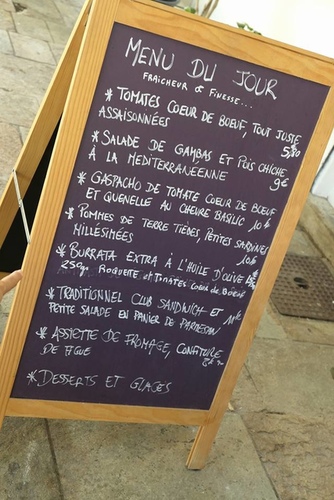 MENU DU JOUR
FRAÎCHEUR et FINESSE...
* TOMATES COEUR DE BOEUF, TOUT JUSTE
ASSAISONNÉES 5,80
* SALADE DE GAMBAS ET POIS CHICHE
À LA MEDITERRANEENNE 9€
* GASPACHO DE TOMATE COEUR DE BOEUF
ET QUENELLE AU CHEVRE BASILIC 10€
* POMMES DE TERRE TIÈDES, PETITES SARDINES
MILLESIMÉES 10€
* BURRATA EXTRA À L'HUILE D'OLIVE
250gr Roquette et Tomates coeur de Boeuf
* TRADITIONNEL CLUB SANDWICH ET
PETITE SALADE EN PANIER DE PARMESAN
* ASSIETTE DE FROMAGE, CONFITURE
DE FIGUE
* DESSERTS ET GLACES